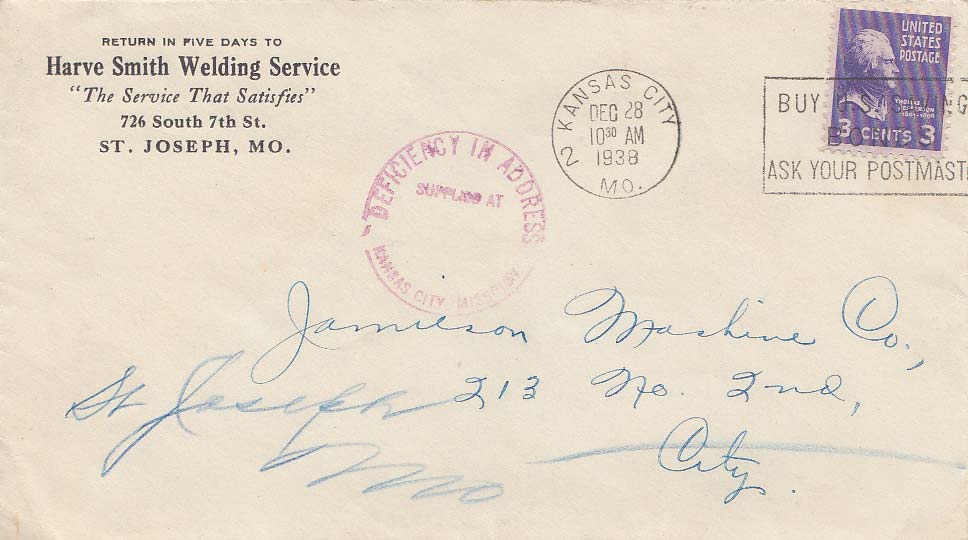 RETURN IN FIVE DAYS TO
Harve Smith Welding Service
"The Service That Satisfies"
726 South 7th St.
ST. JOSEPH, MO.
UNITED
STATES
POSTAGE
THOMAS
JEFFERSON
1801-1809
3 CENTS 3
2 KANSAS CITY
DEC 28
10³⁰ AM
1938
MO.
BUY U.S. SAVING
BO
ASK YOUR POSTMAST
DEFICIENCY IN ADDRESS
SUPPLIED AT
KANSAS CITY, MISSOURI
Jamieson Mashine Co.,
213 No. 2nd,
City.
St Joseph
Mo